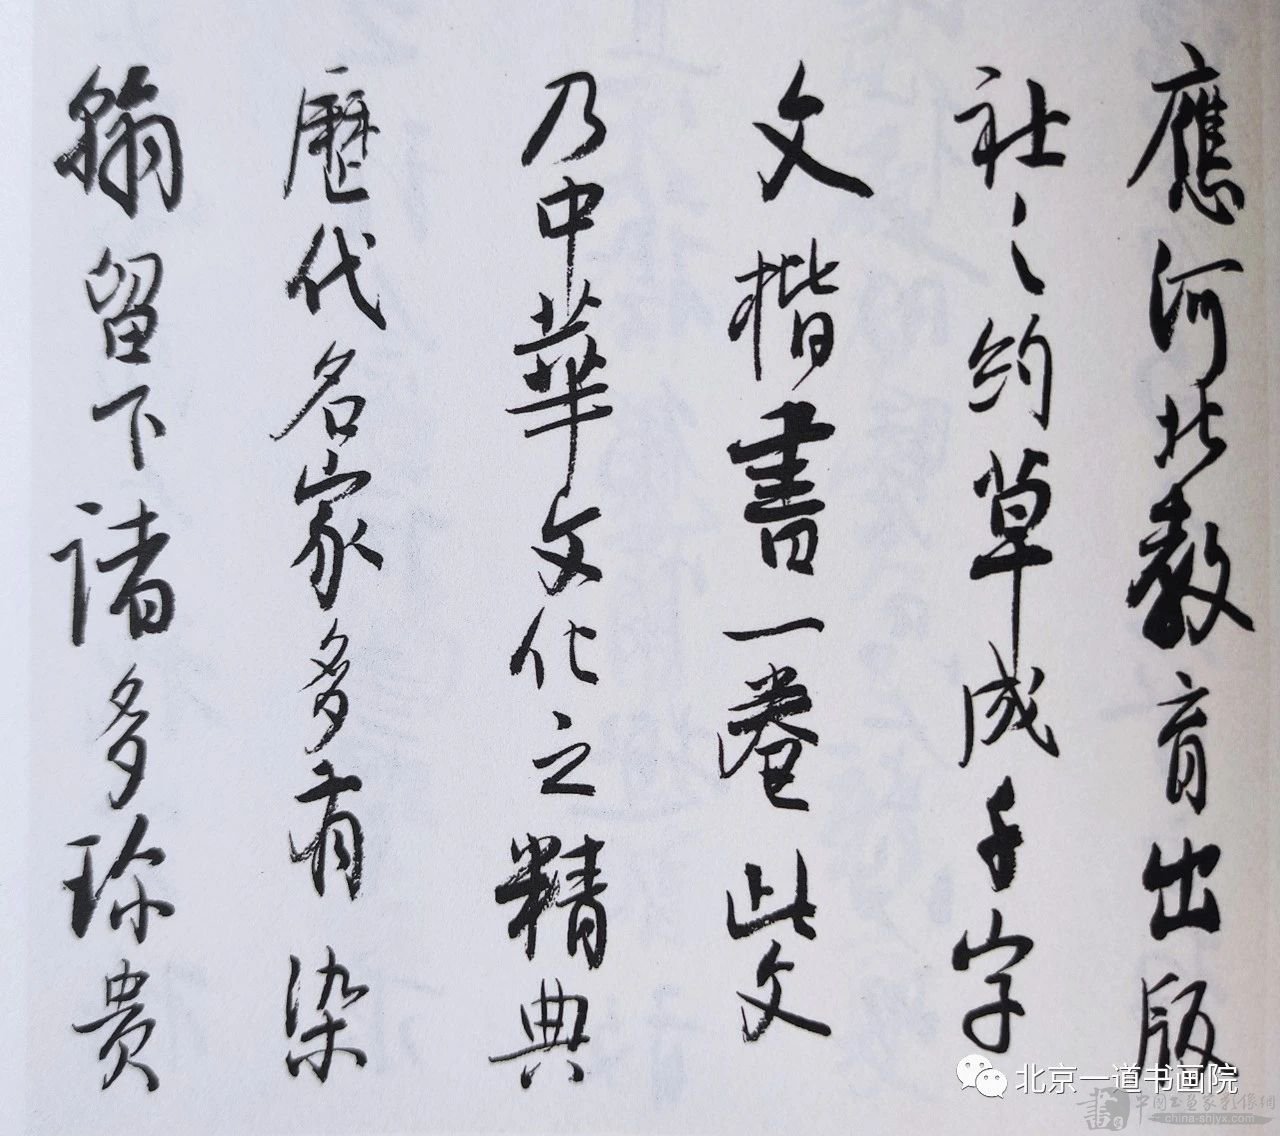 應河北教育出版
社之約草成千字
文楷書一卷此文
乃中華文化之精典
歷代名家多有染
翰留下諸多珍贵
北京一道书画院
中国书画家影像網
www.china-shjyx.com